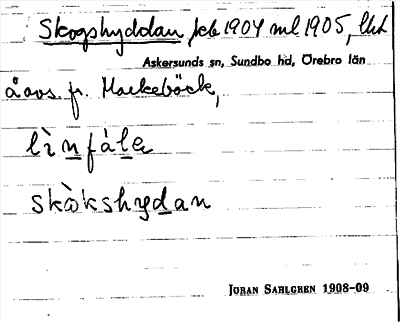 Skogshyddan, jeb 1904 ml 1905, lht
Askersunds sn, Sundbo hd, Örebro län
åavs. fr. Harkebäck,
lìnfàla
skòkshydan
JORAN SAHLGREN 1908-09